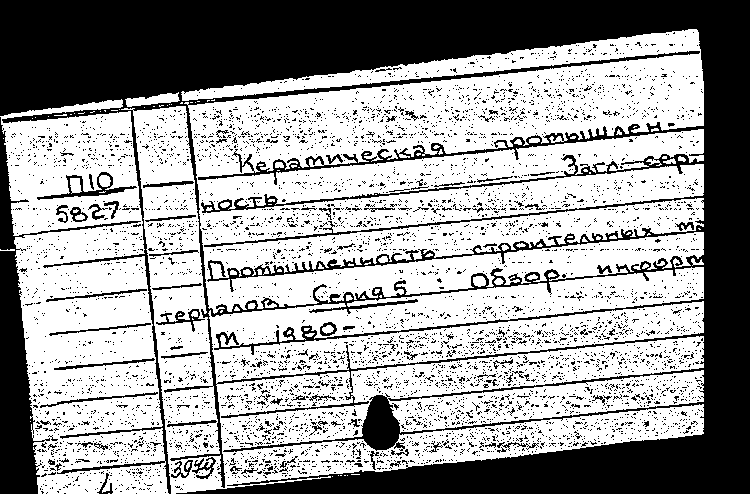 П10
5827
Керамическая промышлен-
ность. Загл. сер.
Промышленность строительных ма
териалов. Серия 5 : Обзор. информ
- М., 1980-
3949